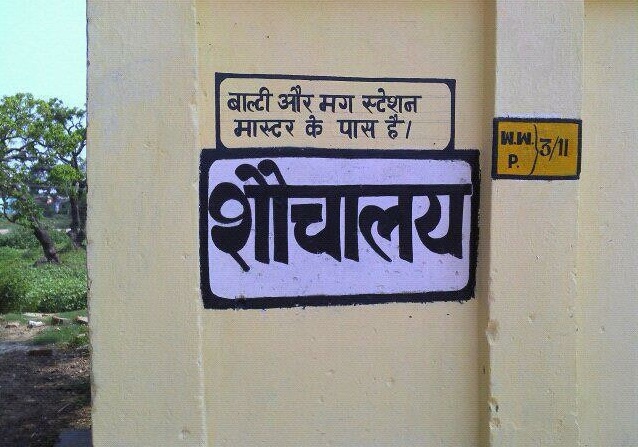 बाल्टी और मग स्टेशन
मास्टर के पास है।
शौचालय
W.W.
P.
3/11